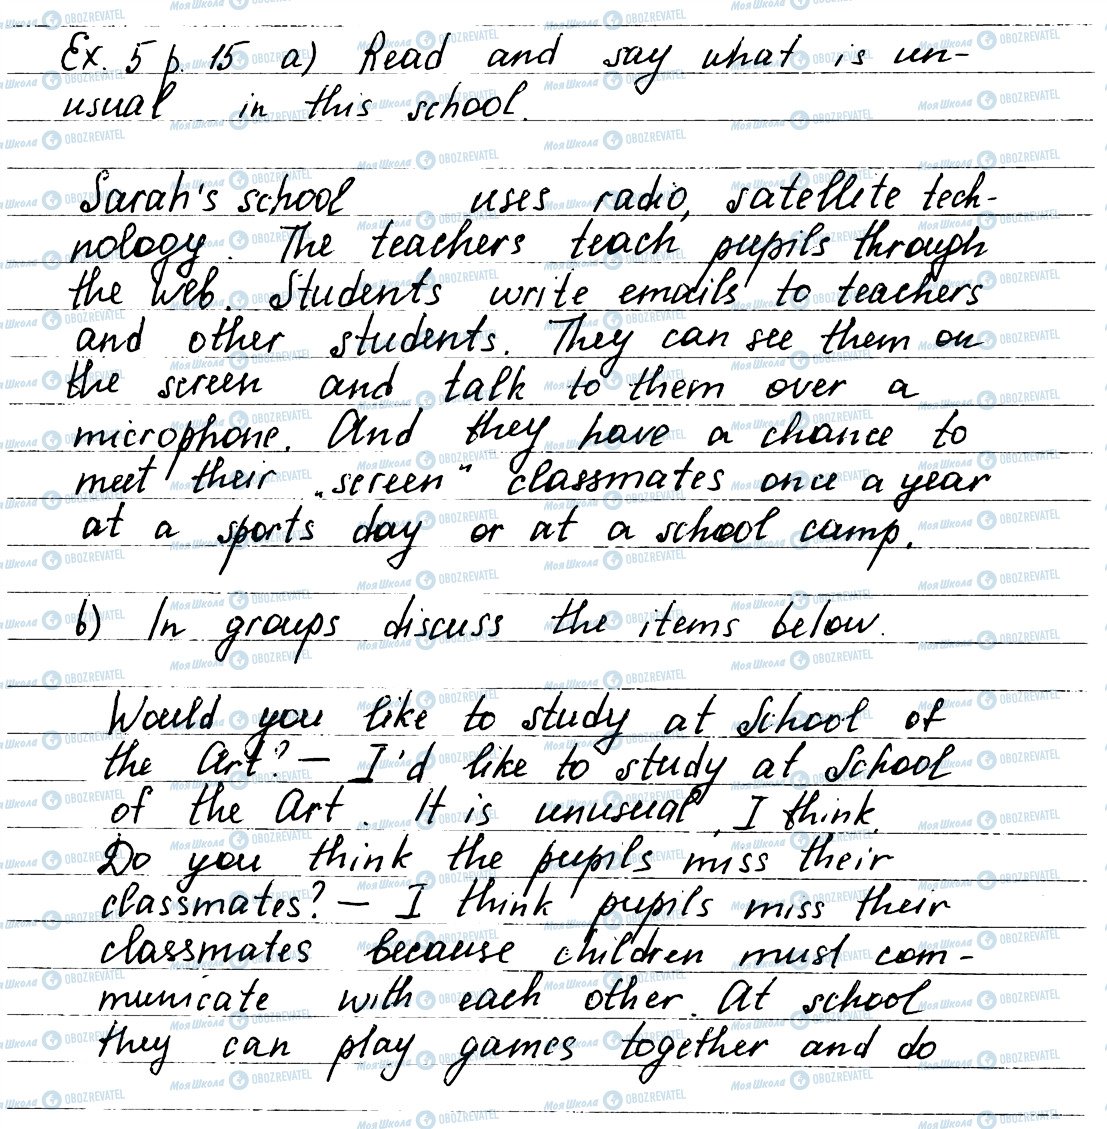 Ex. 5 p. 15 a) Read and say what is un-
usual in this school.
Sarah's school uses radio, satellite tech-
nology. The teachers teach pupils through
the web. Students write emails to teachers
and other students. They can see them on
the screen and talk to them over a
microphone. And they have a chance to
meet their „screen“ classmates once a year
at a sports day or at a school camp.
b) In groups discuss the items below.
Would you like to study at School of
the Art? – I'd like to study at School
of the Art. It is unusual, I think.
Do you think the pupils miss their
classmates? – I think pupils miss their
classmates because children must com-
municate with each other. At school
they can play games together and do